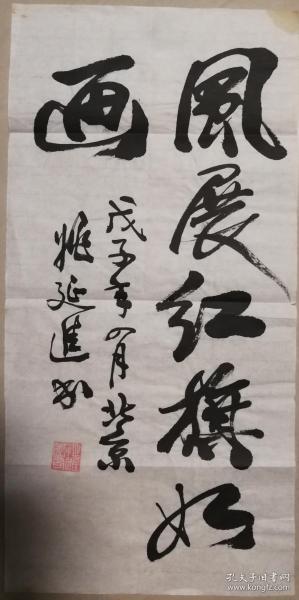 風展红旗如
画
戊子年八月北京
姚延進书
孔夫子旧书网